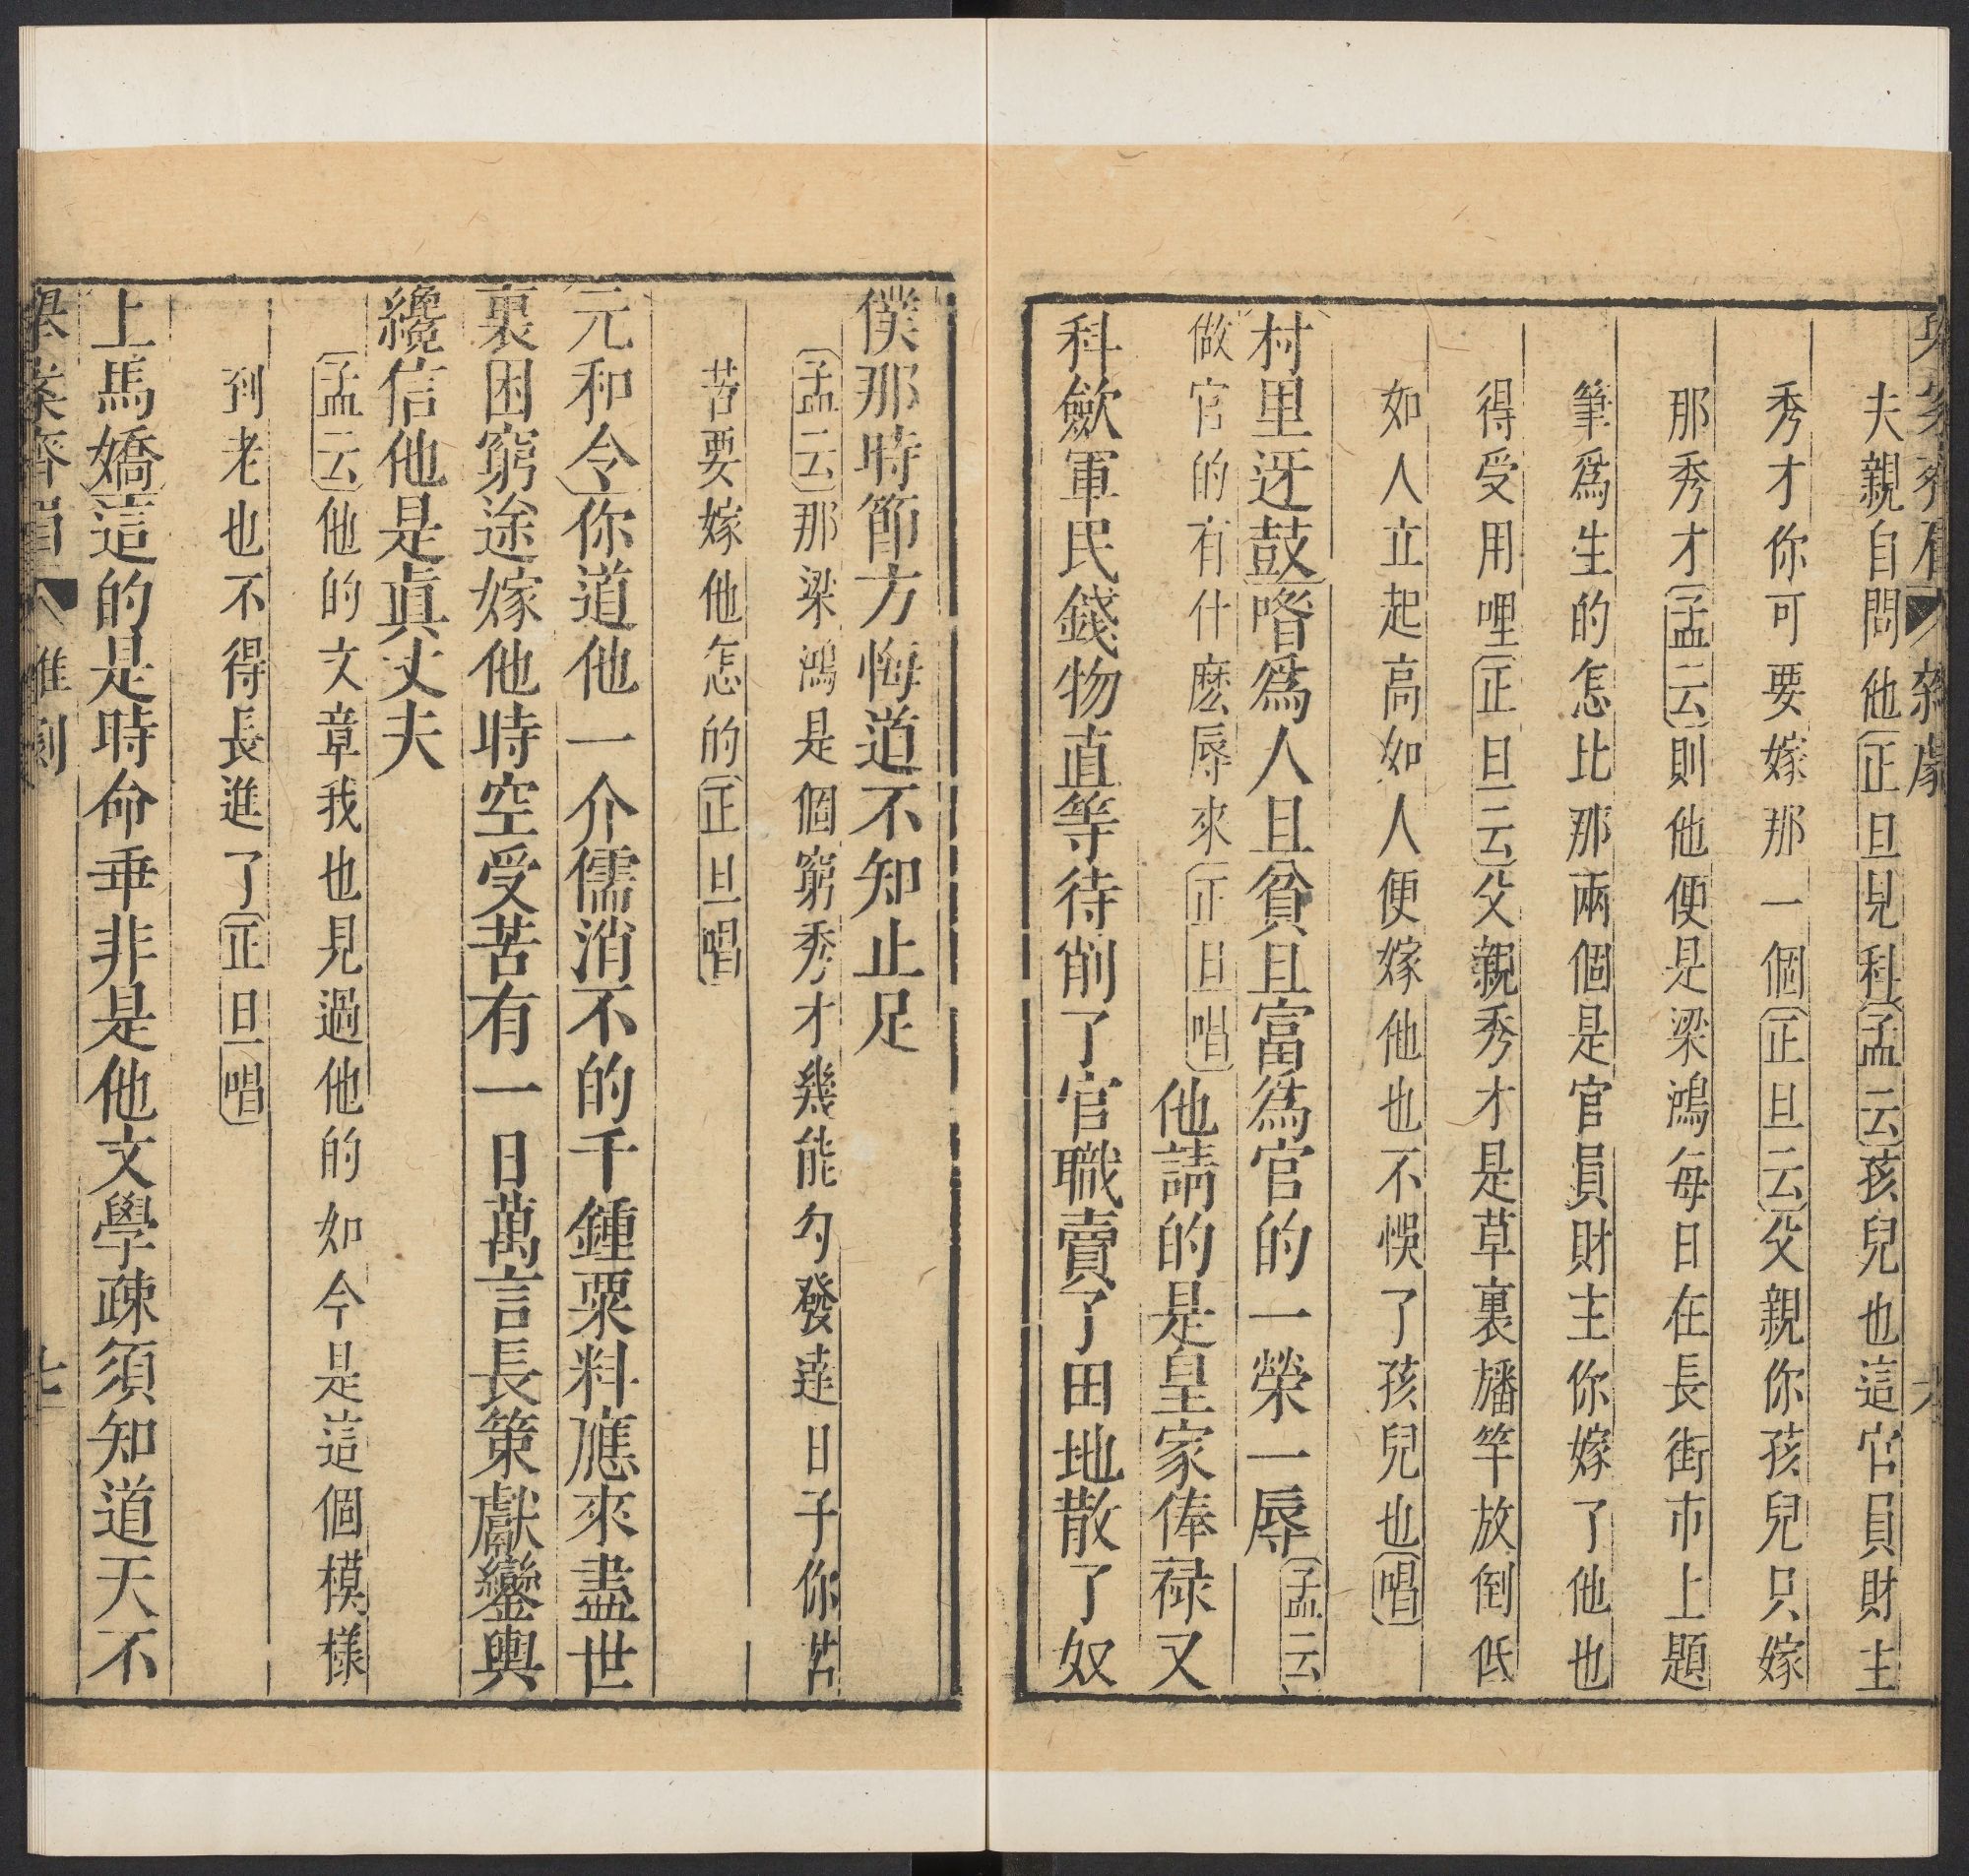 夫親自問他正旦見科孟云孩兒也這官員財主
秀才你可要嫁那一個正旦云父親你孩兒只嫁
那秀才孟云則他便是梁鴻每日在長街市上題
筆爲生的怎比那兩個是官員財主你嫁了他也
得受用哩正旦云父親秀才是草裏旛竿放倒低
如人立起高如人便嫁他也不悞了孩兒也唱
村里迓鼓喒爲人且貧且富爲官的一榮一辱孟云
做官的有什麽辱來正旦唱他請的是皇家俸禄又
科歛軍民錢物直等待削了官職賣了田地散了奴
僕那時節方悔道不知止足
孟云那梁鴻是個窮秀才幾能勾發達日子你苦
苦要嫁他怎的正旦唱
元和令你道他一介儒消不的千鍾粟料應來盡世
裏困窮途嫁他時空受苦有一日萬言長策獻鑾輿
纔信他是眞丈夫
孟云他的文章我也見過他的如今是這個模樣
到老也不得長進了正旦唱
上馬嬌這的是時命乖非是他文學疎須知道天不